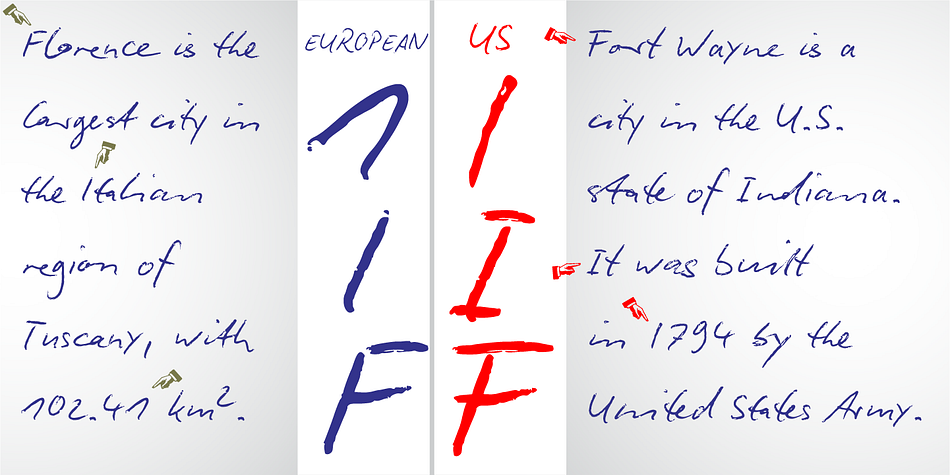 Florence is the
Largest city in
the Italian
region of
Tuscany, with
102.41 km².
EUROPEAN
1
I
F
US
1
I
F
Fort Wayne is a
city in the U.S.
state of Indiana.
It was built
in 1794 by the
United States Army.